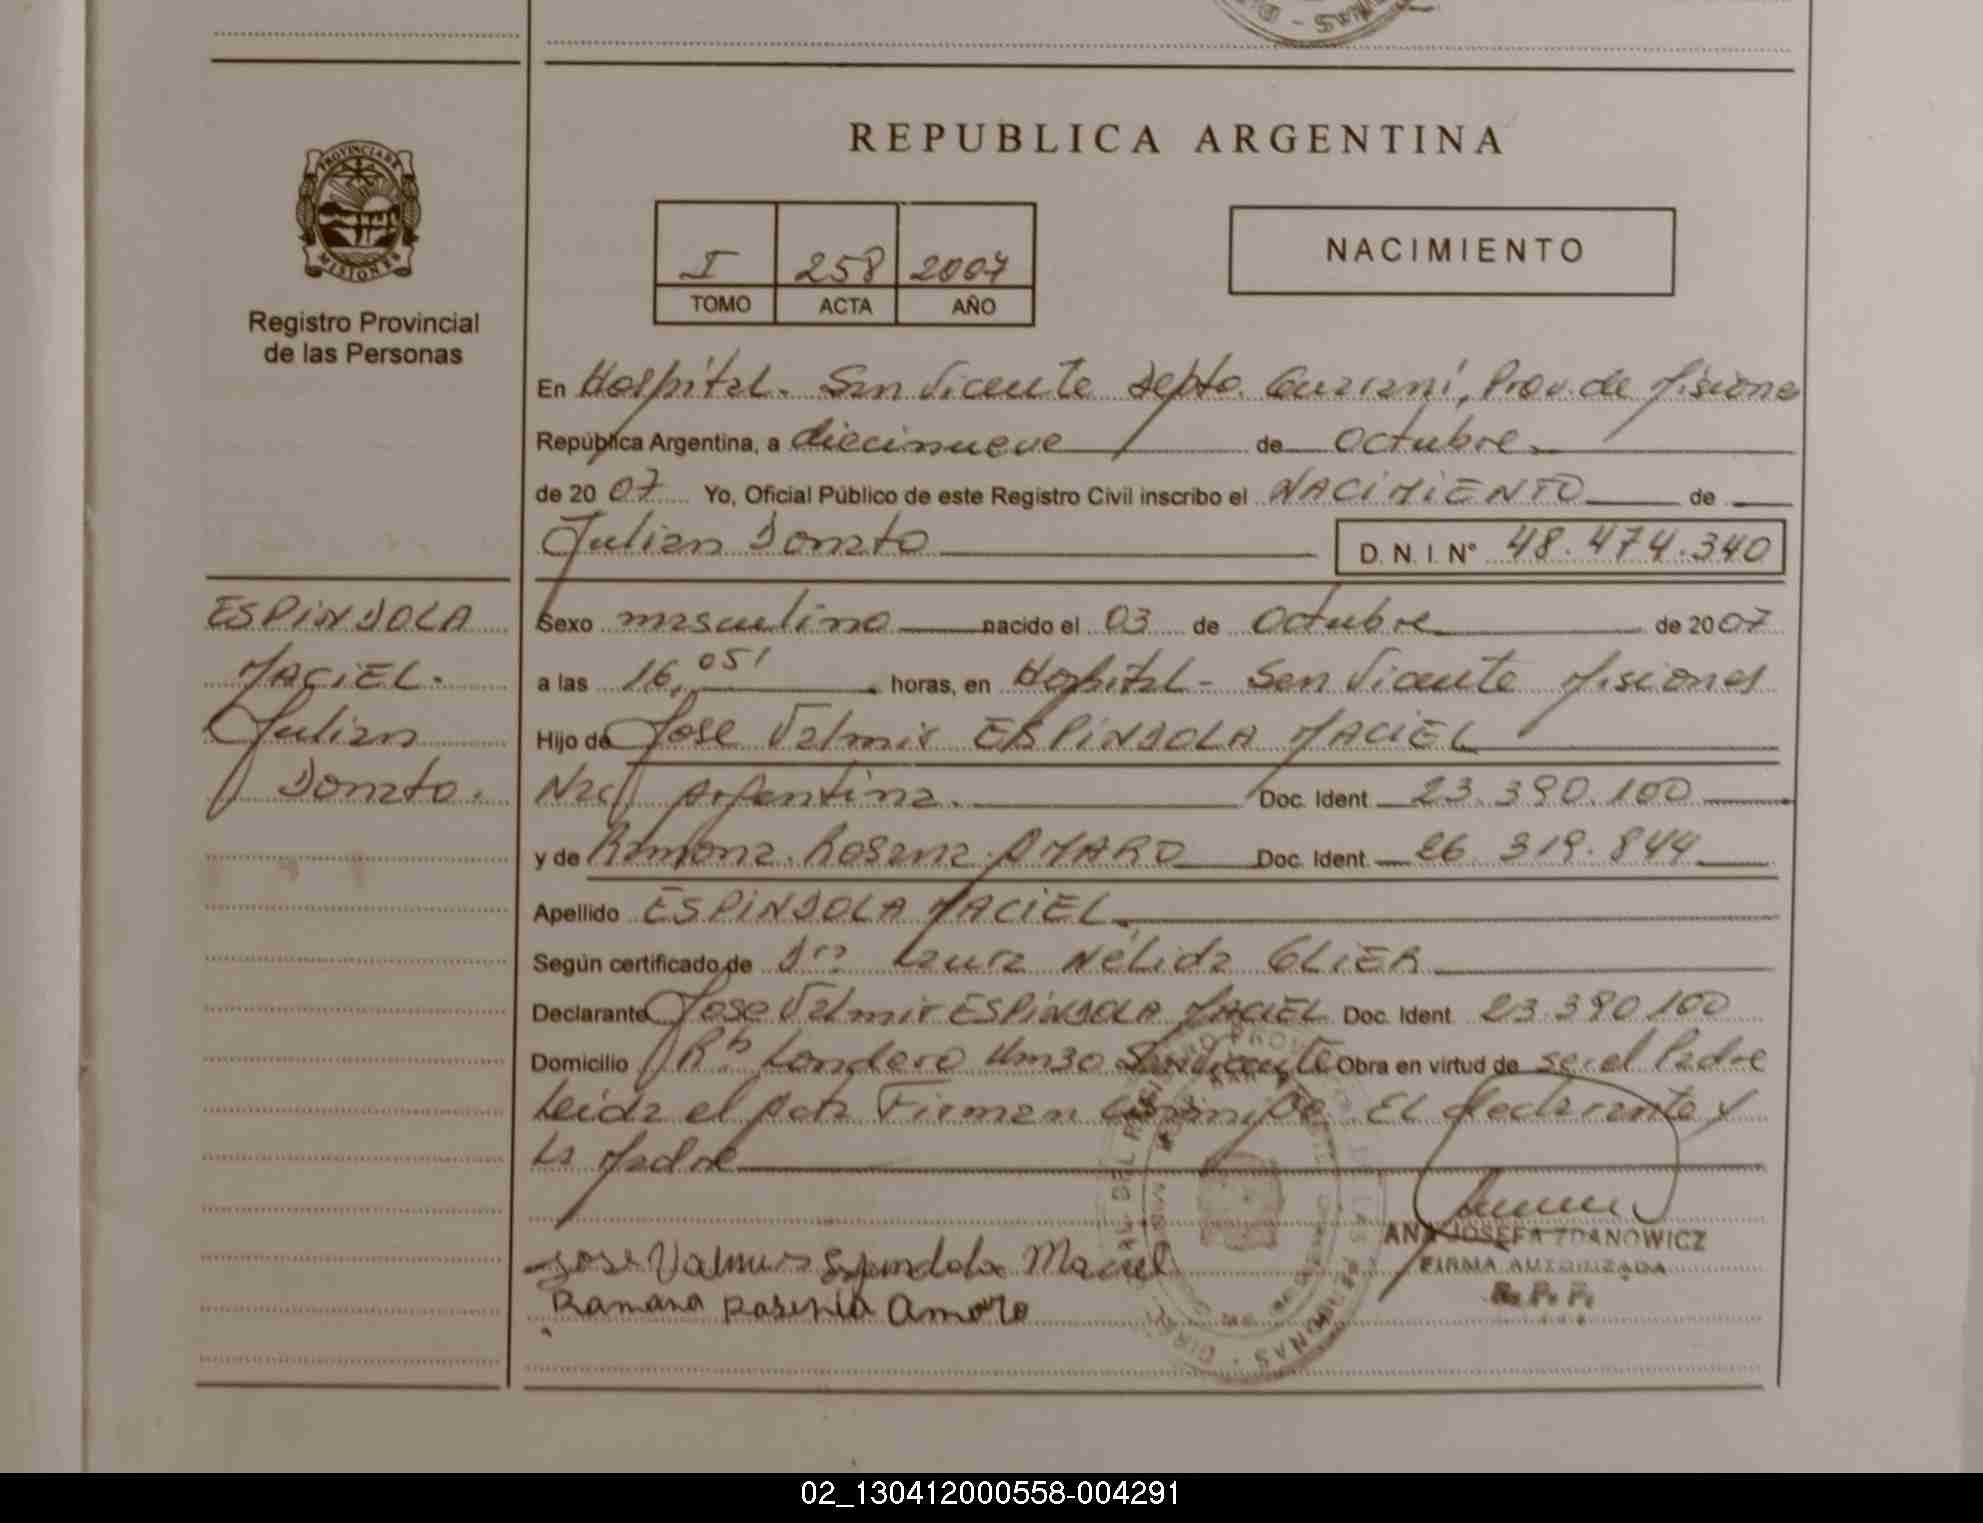 REPUBLICA ARGENTINA
PROVINCIA DE
MISIONES
Registro Provincial
de las Personas
I 258 2007
TOMO ACTA AÑO
NACIMIENTO
En Hospital - San Vicente Depto. Guaraní, Prov. de Misiones
República Argentina, a diecinueve de octubre
de 2007 Yo, Oficial Público de este Registro Civil inscribo el NACIMIENTO de
Julian Donato D. N. I. N° 48.474.340
ESPINDOLA
MACIEL.
Julian
Donato.
Sexo masculino nacido el 03 de octubre de 2007
a las 16,05' horas, en Hospital - San Vicente Misiones
Hijo de Jose Valmir ESPINDOLA MACIEL
Nac. Argentina. Doc. Ident. 23.390.100
y de Ramona Rosana AMARO Doc. Ident. 26.319.844
Apellido ESPINDOLA MACIEL
Según certificado de Dra Laura Nélida GLIER
Declarante Jose Valmir ESPINDOLA MACIEL Doc. Ident. 23.390.100
Domicilio Bº Londero Km30 San Vicente Obra en virtud de ser el Padre
Leida el Acta Firman Conmigo El declarante y
La Madre
Jose Valmir Espindola Maciel
Ramona Amaro
ANA JOSEFA ZDANOWICZ
FIRMA AUTORIZADA
R. P. P.
02_130412000558-004291